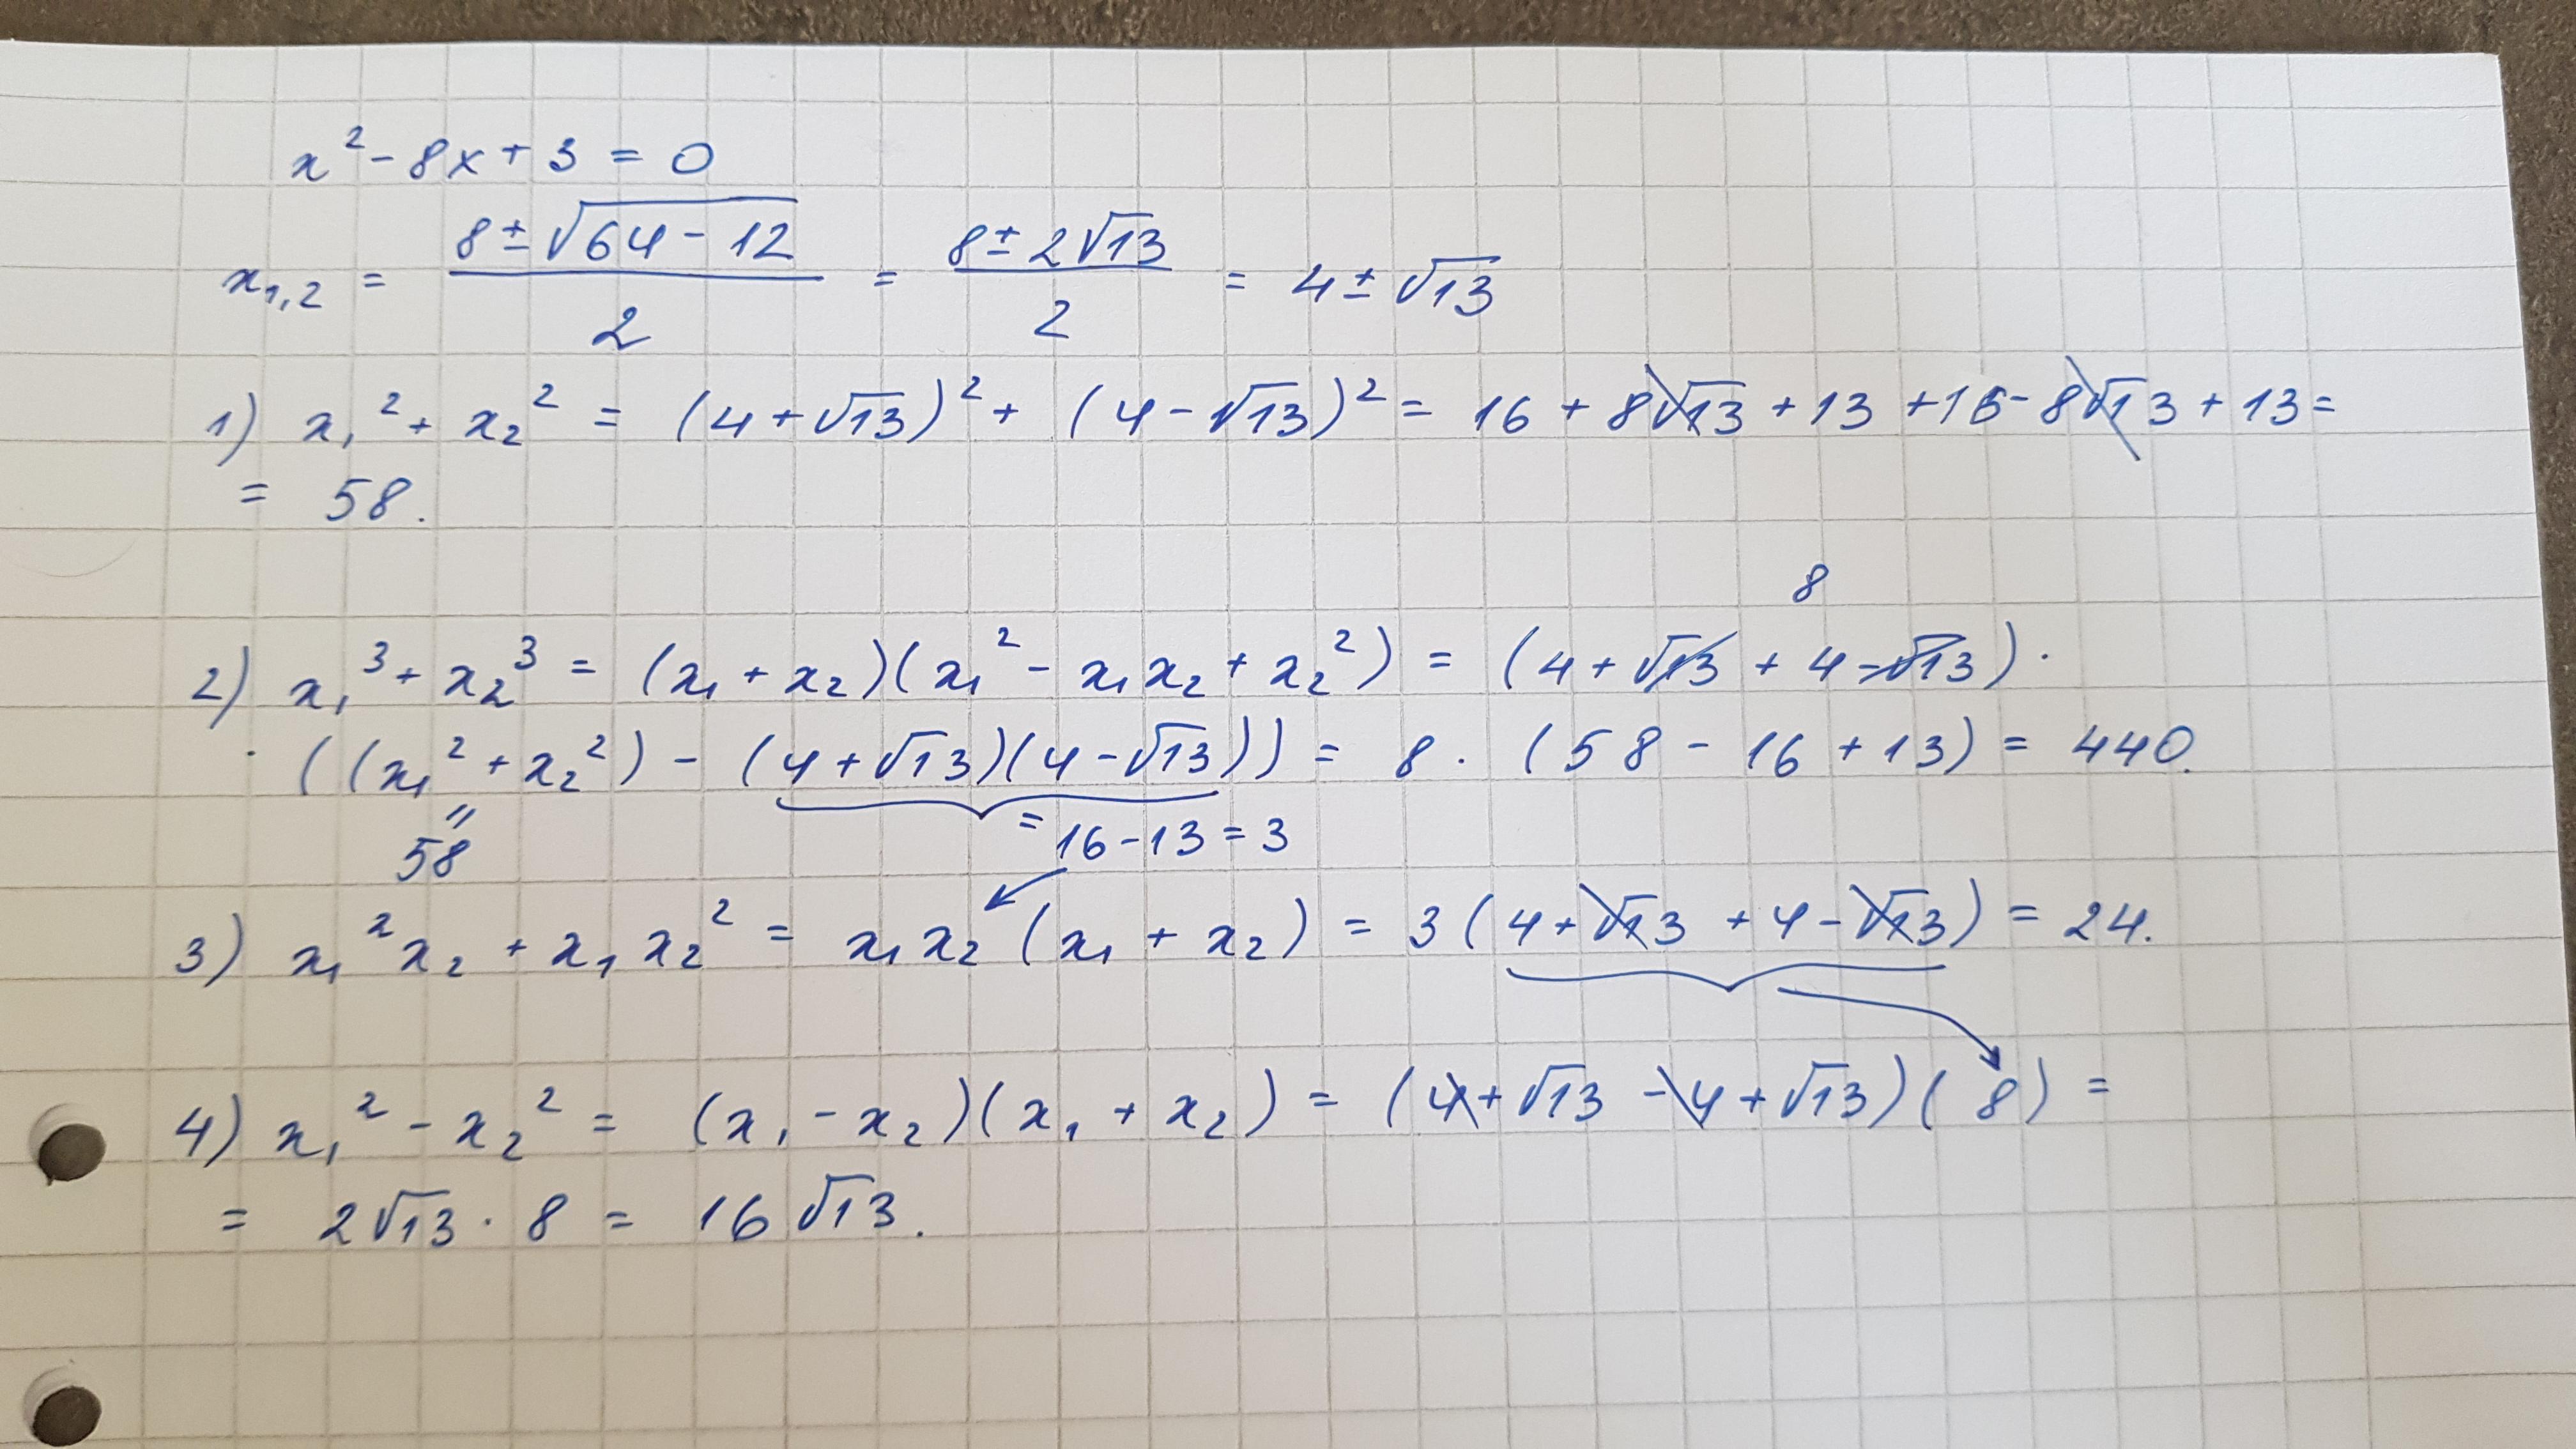 x² - 8x + 3 = 0
x₁,₂ = (8 ± √(64 - 12))/2 = (8 ± 2√13)/2 = 4 ± √13
1) x₁² + x₂² = (4 + √13)² + (4 - √13)² = 16 + 8√13 + 13 + 16 - 8√13 + 13 =
= 58.
8
2) x₁³ + x₂³ = (x₁ + x₂)(x₁² - x₁x₂ + x₂²) = (4 + √13 + 4 - √13) ·
· ((x₁² + x₂²) - (4 + √13)(4 - √13)) = 8 · (58 - 16 + 13) = 440.
= 16 - 13 = 3
58
3) x₁²x₂ + x₁x₂² = x₁x₂(x₁ + x₂) = 3(4 + √13 + 4 - √13) = 24.
4) x₁² - x₂² = (x₁ - x₂)(x₁ + x₂) = (4 + √13 - 4 + √13)(8) =
= 2√13 · 8 = 16√13.